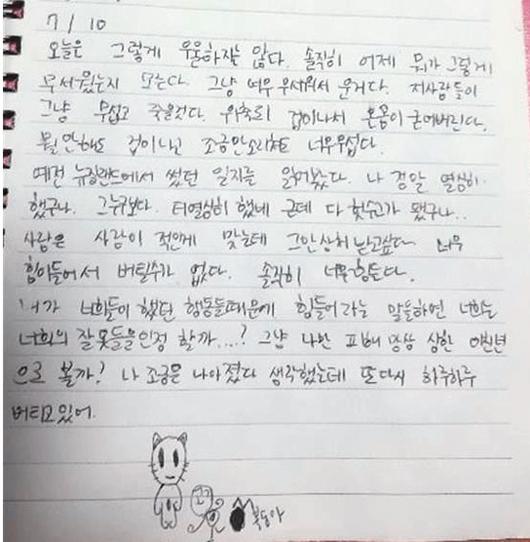 7 / 10
오늘은 그렇게 우울하지는 않다. 솔직히 어제 뭐가 그렇게
무서웠는지 모른다. 그냥 너무 무서워서 운거다. 저사람들이
그냥 무섭고 죽을것다. 위축되 겁이나서 온몸이 굳어버린다.
뭘 안해도 겁이나고 조금만소리쳐도 너무무섭다.
예전 뉴질랜드에서 썼던 일지를 읽어봤다. 나 정말 열심히
했구나. 그누구보다. 더열심히 했네 근데 다 헛수고가 됐구나..
사람은 사람이 적인게 맞는데 그만 상처 받고싶다 너무
힘이들어서 버틸수가 없다. 솔직히 너무힘든다.
내가 너희들이 했던 행동들때문에 힘들어라는 말을하면 너희는
너희의 잘못들을인정 할까....? 그냥 나만 피해 망상 심한 미친년
으로 볼까? 나 조금은 나아졌다 생각했는데 또다시 하루하루
버티고있어.
복동아